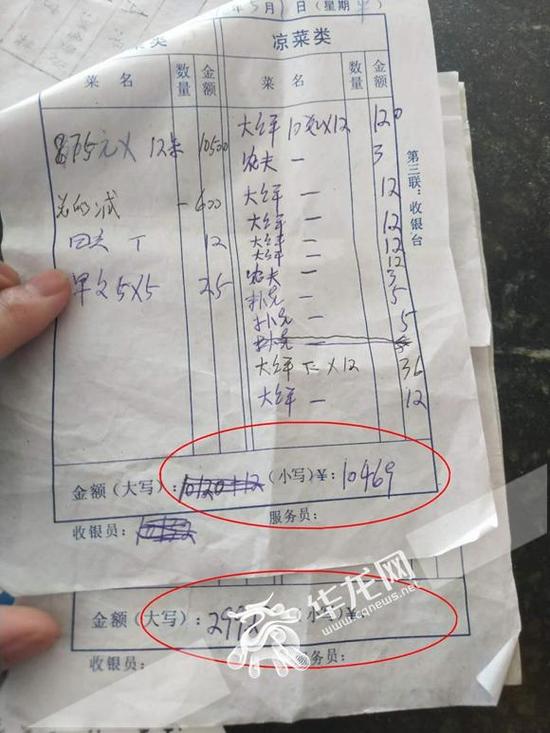 5月 日(星期
菜类 凉菜类
菜名 数量 金额 菜名 数量 金额
875元X 12桌 10500 大红平 10元X12 120
农夫 一 3
总的减 -400 大红平 一 12
大红平 一 12
回头 丁 12 大红平 一 12
大红平 一 12
早文5X5 25 农夫 一 3
扑克 一 5
扑克 一 5
扑克 一 5
大红平 三X12 36
大红平 一 12
第三联:收银台
金额(大写): 10120+12 (小写)¥: 10469
收银员: 服务员:
华龙网
www.cqnews.net
金额(大写): 299 (小写)¥
收银员: 服务员: